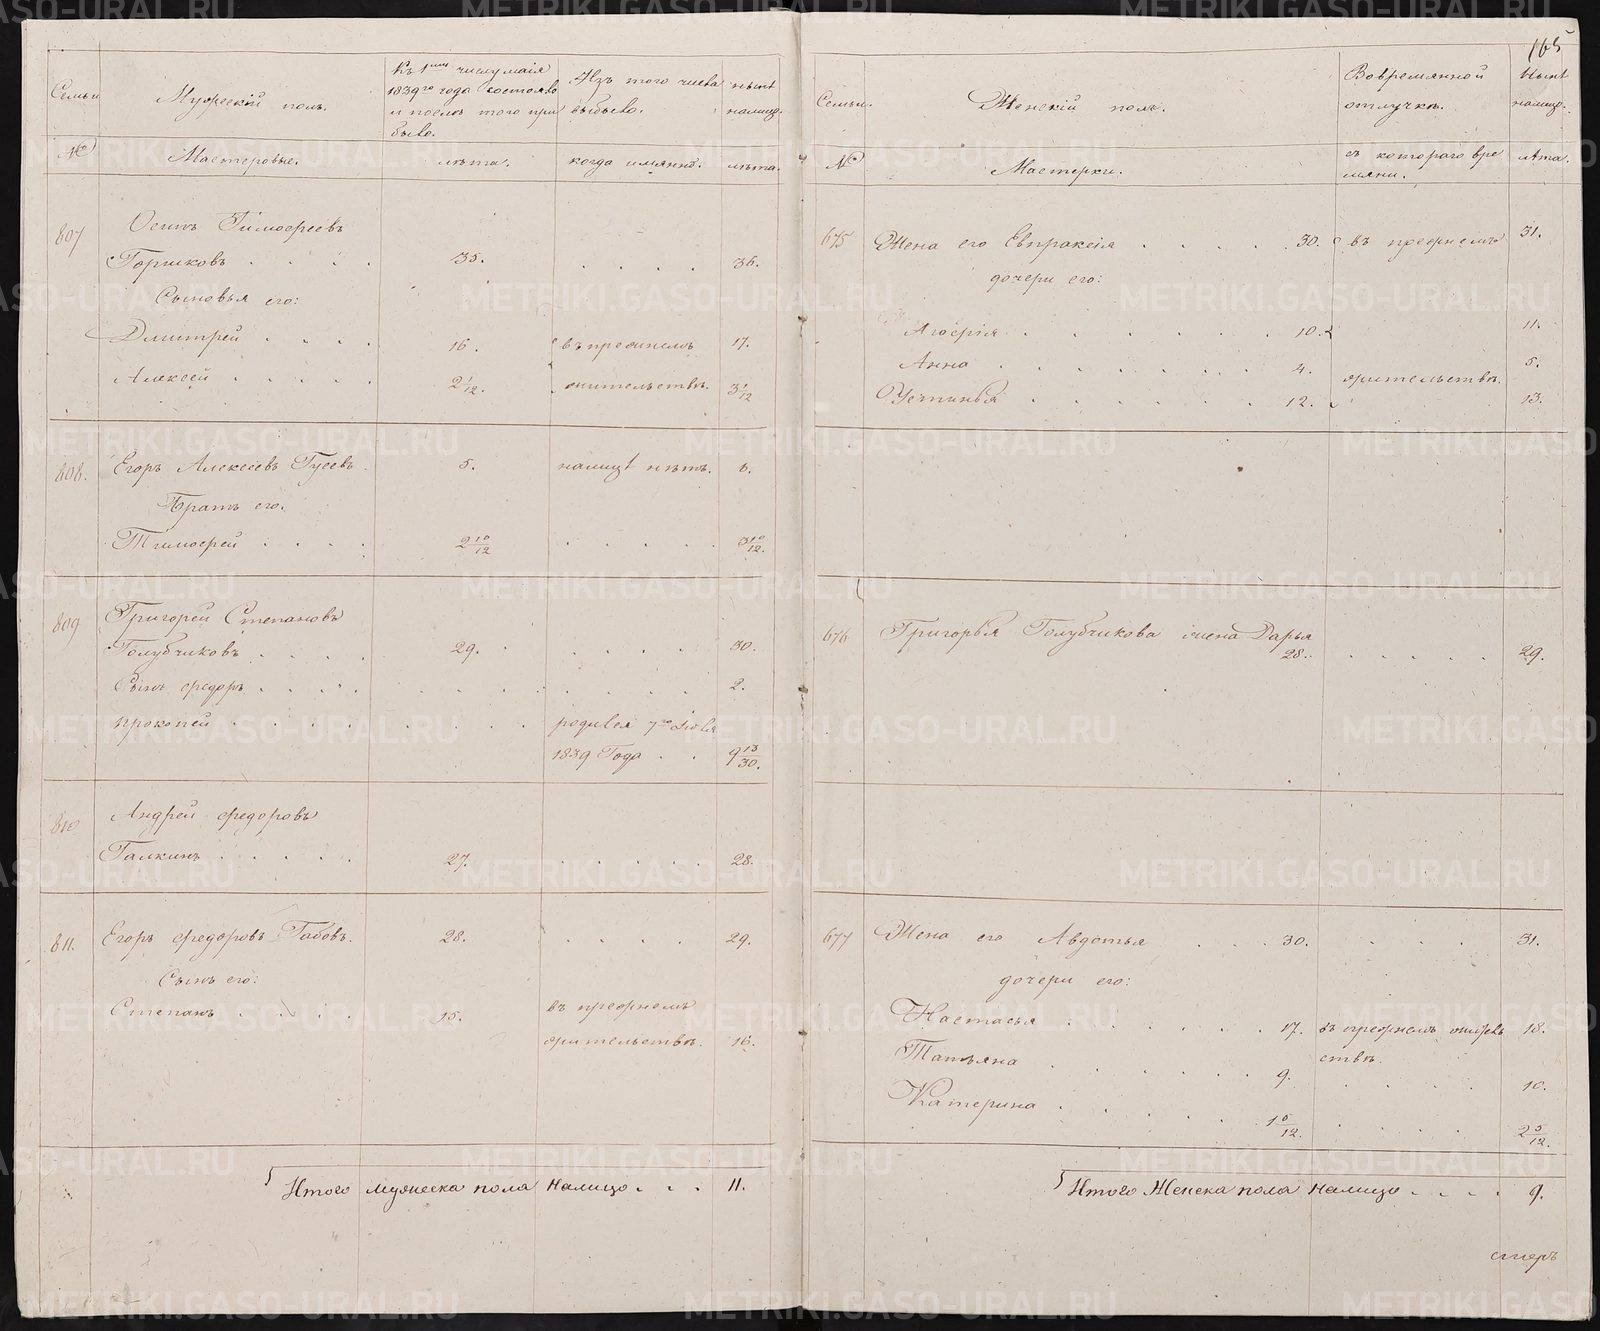 165
Семьи
Мужескій полъ.
Къ 1му числу маія
1839го года состояло
и послѣ того при
было.
Изъ того числа
выбыло.
нынѣ
налицо.
№
Мастеровые.
лѣта.
когда имянно.
лѣта.
807
Осипъ Тимофеевъ
Горшковъ . . . . 35. . . . . 36.
Сыновья его:
Дмитрей . . . . 16. въ прежнемъ 17.
Алексей . . . . . 2 1/12. жительствѣ. 3 1/12
808. Егоръ Алексеевъ Гусевъ. 5. налицѣ нѣтъ. 6.
Братъ его.
Тимофей . . . . 2 10/12 . . . . . 3 10/12.
809 Григорей Степановъ
Голубчиковъ . . . . 29. . . . . . 30.
Сынъ Федоръ . . . . . . . . 2.
Прокопей . . . . . . . . родился 7го Июля
1839 Года . . 9 13/30.
810 Андрей Федоровъ
Галкинъ . . . . . 27. . . . . . 28.
811. Егоръ Федоровъ Габовъ. 28. . . . . 29.
Сынъ его:
Степанъ . . . . 15. въ прежнемъ
жительствѣ. 16.
Итого мужеска пола налицо . . . 11.
Семьи.
Женскій полъ.
Во времянной
отлучкѣ.
Нынѣ
налицо.
№
Мастерки.
съ котораго вре
мяни.
лѣта.
675 Жена его Евпраксія . . . . . 30. въ прежнемъ 31.
дочери его:
Агферія . . . . . . 10. 11.
Анна . . . . . . . 4. жительствѣ. 5.
Устинья . . . . . . 12. 13.
676 Григорья Голубчикова жена Дарья
28. . . . . . 29.
677 Жена его Авдотья . . . 30. . . . . 31.
дочери его:
Настасья . . . . . . 17. въ прежнемъ жител 18.
ствѣ.
Татьяна . . . . . . 9. . . . . 10.
Катерина . . . . . . 1 5/12. . . . . 2 5/12.
Итого Женска пола налицо . . . . 9.